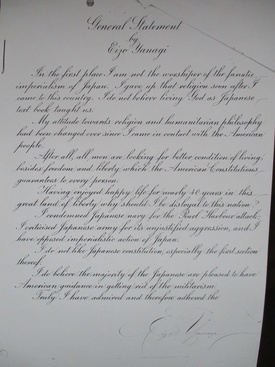 General Statement
by
Eizo Yanagi
In the first place I am not the worshiper of the fanatic
imperialism of Japan. I gave up that religion soon after I
came to this country. I do not believe living God as Japanese
text book taught us.
My attitude towards religion and humanitarian philosophy
had been changed ever since I came in contact with the American
people.
After all, all men are looking for better condition of living,
besides freedom and liberty which the American Constitutions
guarantees to every person.
Having enjoyed happy life for nearly 40 years in this
great land of liberty why should I be disloyal to this nation?
I condemned Japanese navy for the Pearl Harbour attack,
I criticised Japanese army for its unjustified aggression, and I
have opposed imperialistic action of Japan.
I do not like Japanese constitution, especially the first section
thereof.
I do believe the majority of the Japanese are pleased to have
American guidance in getting rid of the militarism.
Truly I have admired and therefore adhered the